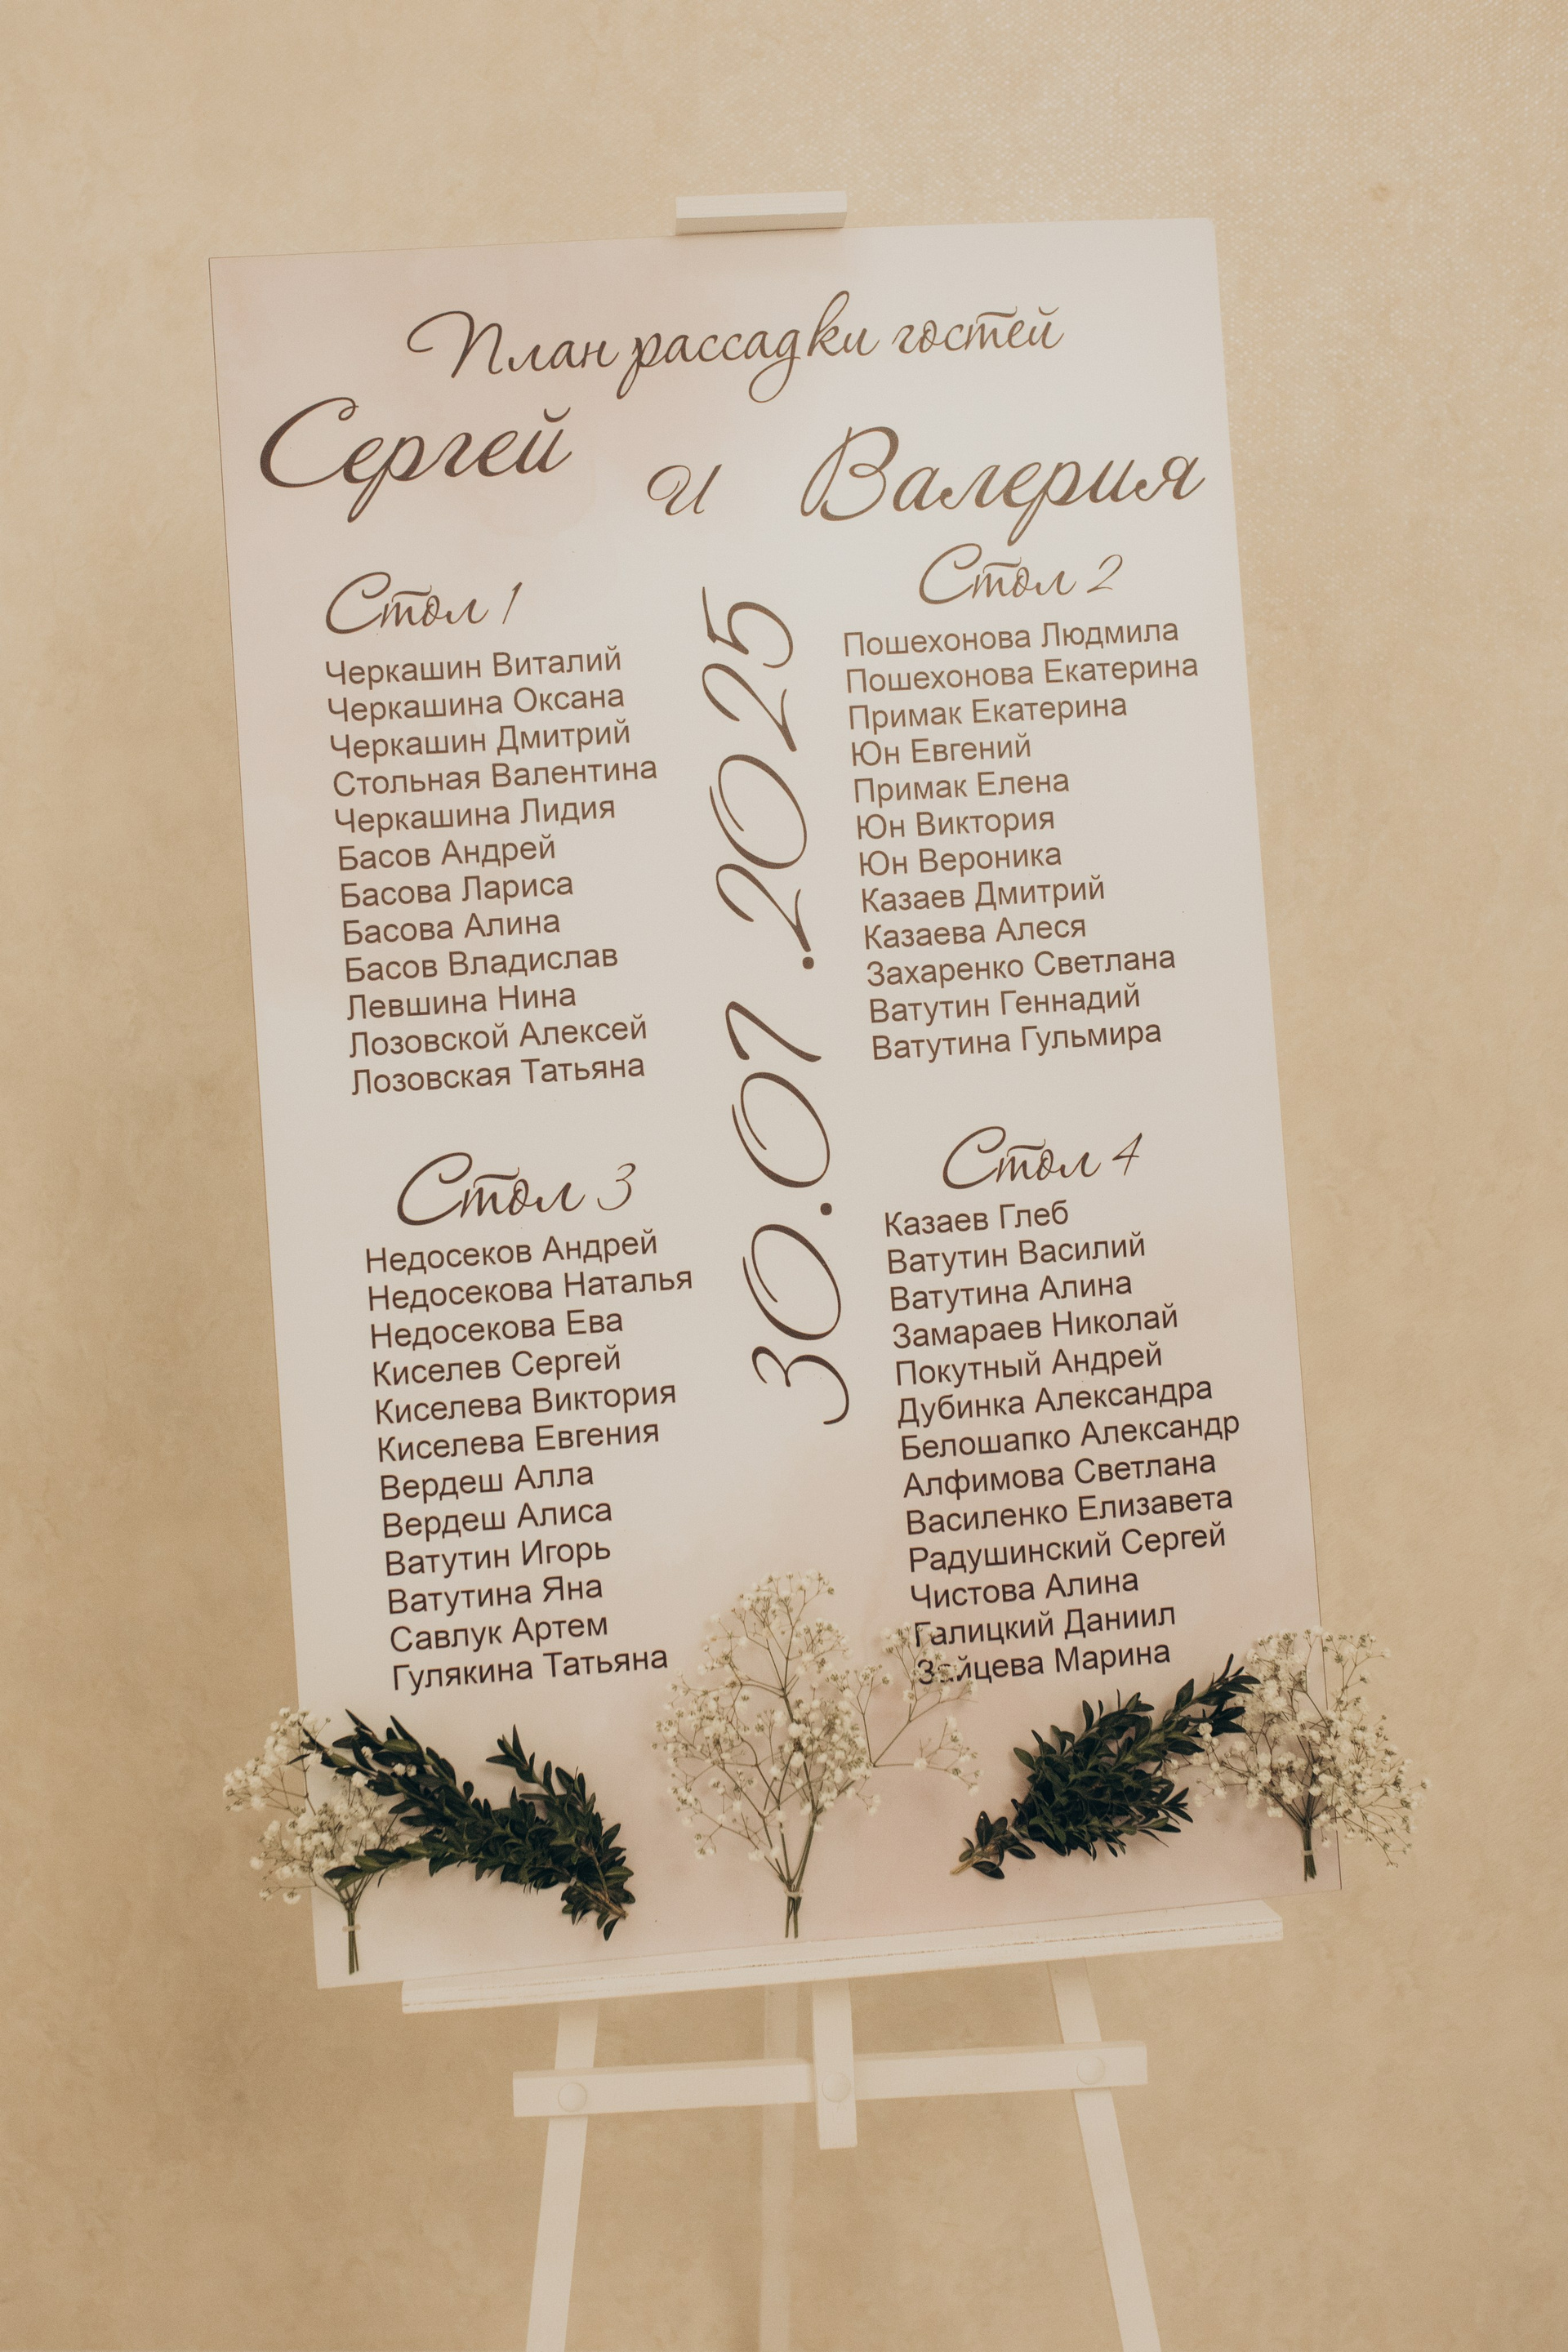 План рассадки гостей
Сергей и Валерия
Стол 1
Черкашин Виталий
Черкашина Оксана
Черкашин Дмитрий
Стольная Валентина
Черкашина Лидия
Басов Андрей
Басова Лариса
Басова Алина
Басов Владислав
Левшина Нина
Лозовской Алексей
Лозовская Татьяна
30.01.2025
Стол 2
Пошехонова Людмила
Пошехонова Екатерина
Примак Екатерина
Юн Евгений
Примак Елена
Юн Виктория
Юн Вероника
Казаев Дмитрий
Казаева Алеся
Захаренко Светлана
Ватутин Геннадий
Ватутина Гульмира
Стол 3
Недосеков Андрей
Недосекова Наталья
Недосекова Ева
Киселев Сергей
Киселева Виктория
Киселева Евгения
Вердеш Алла
Вердеш Алиса
Ватутин Игорь
Ватутина Яна
Савлук Артем
Гулякина Татьяна
Стол 4
Казаев Глеб
Ватутин Василий
Ватутина Алина
Замараев Николай
Покутный Андрей
Дубинка Александра
Белошапко Александр
Алфимова Светлана
Василенко Елизавета
Радушинский Сергей
Чистова Алина
Галицкий Даниил
Зайцева Марина